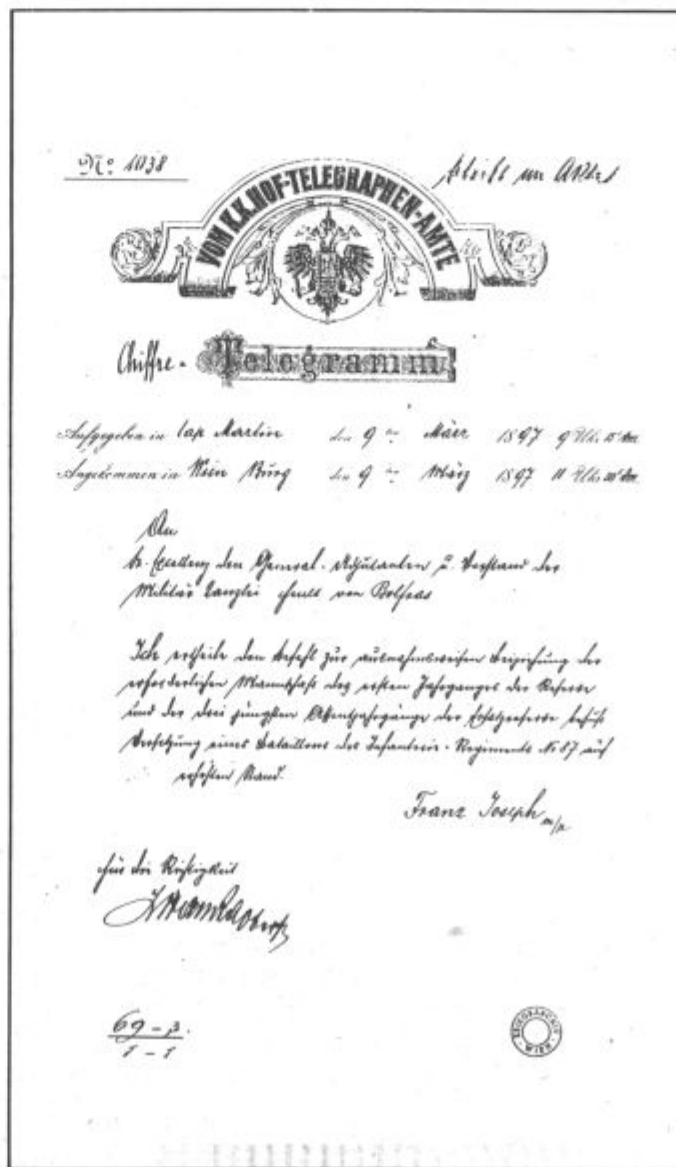 No 1038
bleibt im Akte
VOM K.K. HOF-TELEGRAPHEN-AMTE
Chiffre - Telegramm
Aufgegeben in Cap Martin den 9 ten März 1897 9 Uhr 15
Angekommen in Wien Burg den 9 ten März 1897 11 Uhr
An
Se. Excellenz den General-Adjutanten u. Vorstand der
Militär Kanzlei von Bolfras
Ich ertheile den Befehl zur ausnahmsweisen Beiziehung der
erforderlichen Mannschaft des ersten Jahrganges der Reserve
und der drei jüngsten Assentjahrgänge der Ersatzreserve behufs
Versetzung eines Bataillons des Infanterie-Regiments No 87 auf
erhöhten Stand.
Franz Joseph m/p
Für die Richtigkeit
Oberst
69-3
1-1
KRIEGSARCHIV WIEN